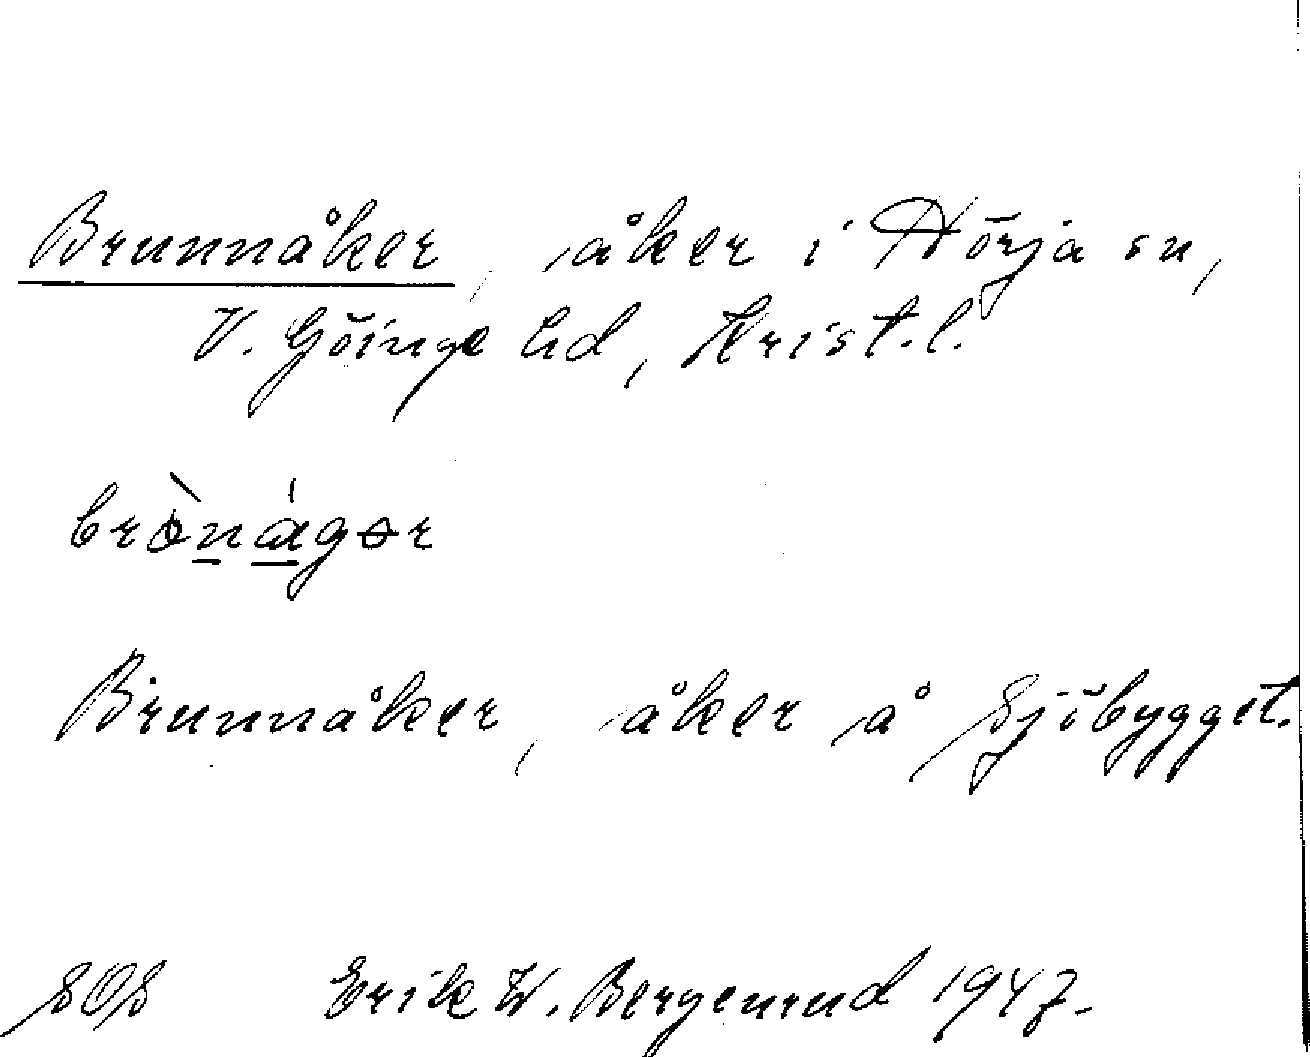 Brunnåker, åker i Hörja sn,
V. Göinge hd, Krist. l.
brònágər
Brunnåker, åker å Sjöbygget.
SOS Erik W. Bergenrud 1947.